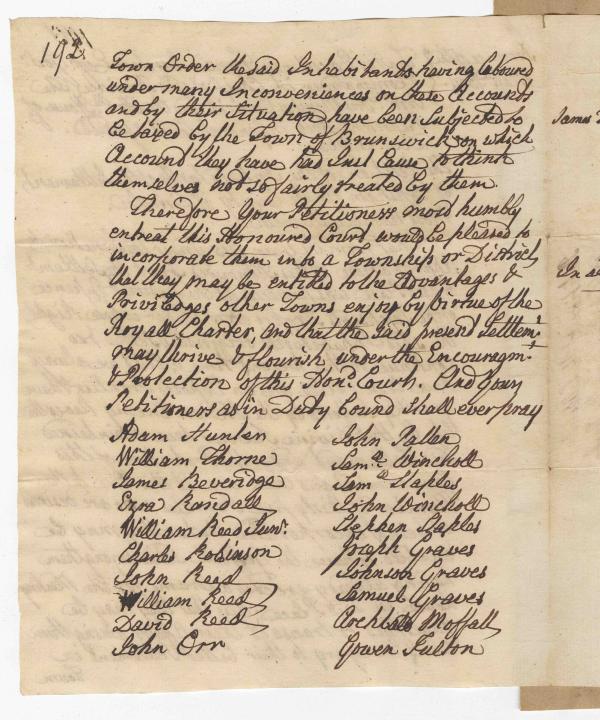 192
Town Order the said Inhabitants having laboured
under many Inconveniences on these Accounds
and by their Situation have been Subjected to
be taxed by the Town of Brunswick, on which
Accound they have had Just Cause to think
themselves not so fairly treated by them.
Therefore Your Petitioners most humbly
entreat this Honoured Court would be pleased to
incorporate them into a Township or District
that they may be entitled to the Advantages &
Priviledges other Towns enjoy by Virtue of the
Royall Charter, and that the said present Settlemt
may thrive & flourish under the Encouragmt
& Protection of this Hond Court. And Your
Petitioners as in Duty bound shall ever pray
Adam Hunter
John Patten
William Thorne
Samll Winchell
James Beveridge
Samll Staples
Ezra Randall
John Winchell
William Reed Junr
Stephen Staples
Charles Robinson
Joseph Graves
John Reed
Johnson Graves
William Reed
Samuel Graves
David Reed
Moffatt
John Orr
Gowen Fulton
James
In a